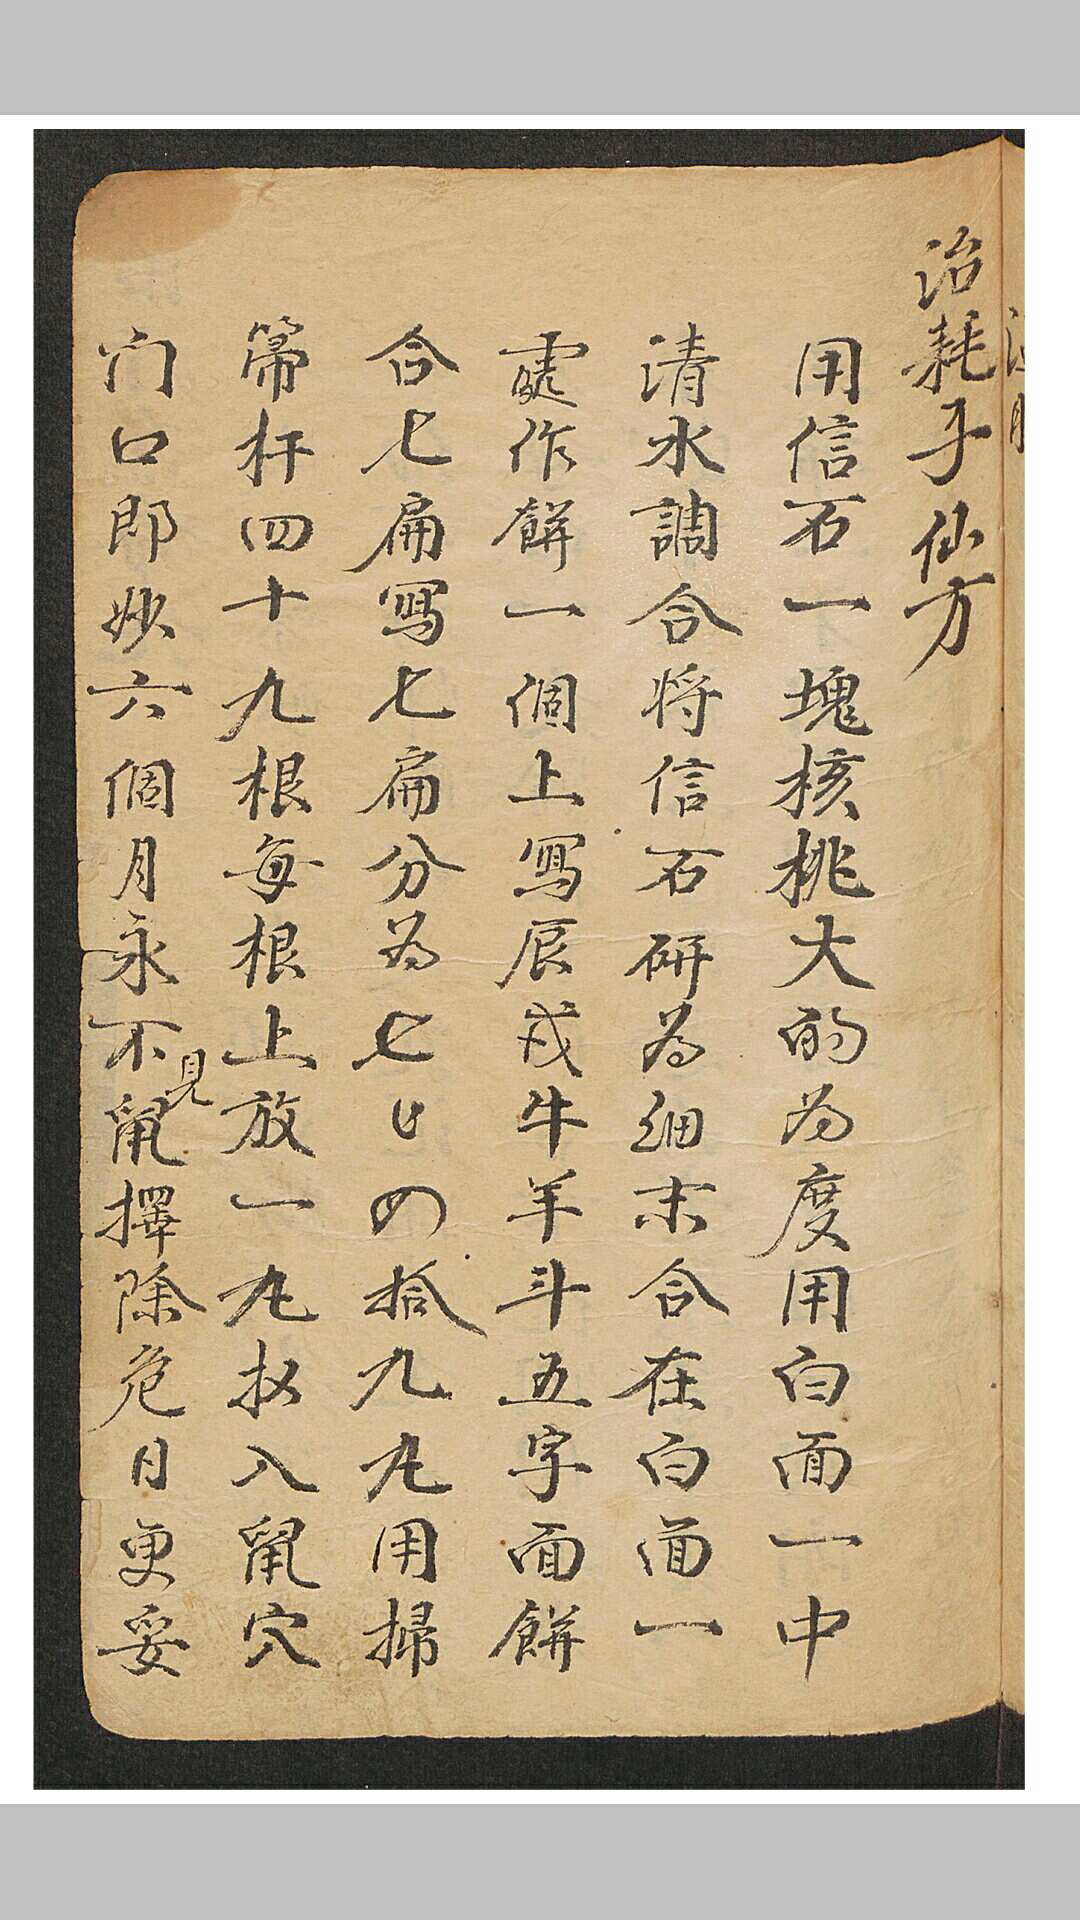 治耗子仙方
用信石一塊核桃大的为度用白面一中
清水調合將信石研为細末合在白面一
處作餅一個上寫辰戌牛羊斗五字面餅
合七扁寫七扁分为七七四拾九丸用掃
箒杆四十九根每根上放一丸扠入鼠穴
门口即妙六個月永不見鼠擇除危日更妥